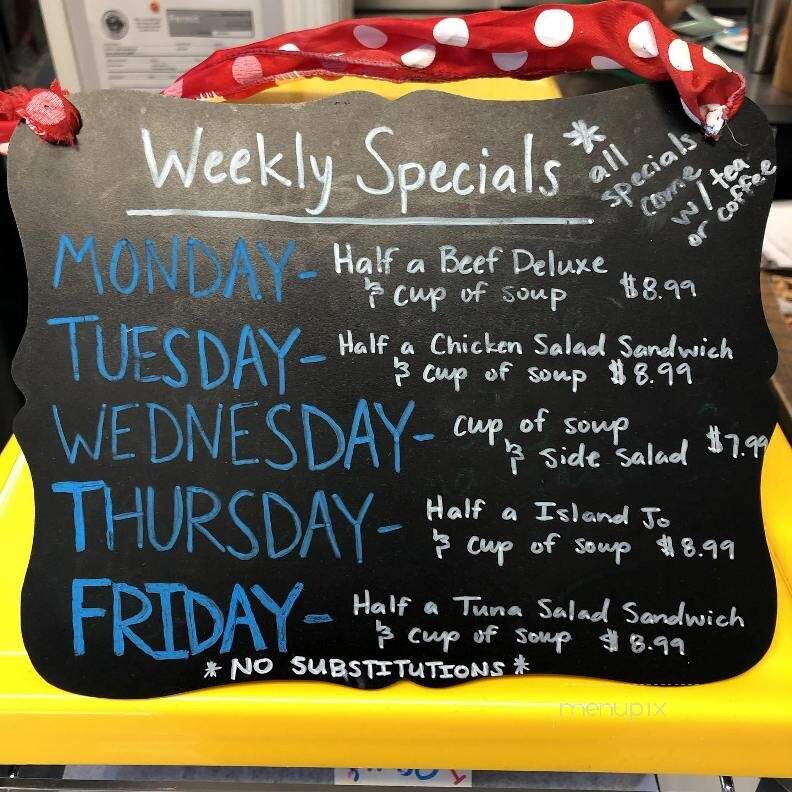 Weekly Specials
* all
specials
come
w/ tea
or coffee
MONDAY - Half a Beef Deluxe
& cup of soup $8.99
TUESDAY - Half a Chicken Salad Sandwich
& cup of soup $8.99
WEDNESDAY - cup of soup
& side salad $7.99
THURSDAY - Half a Island Jo
& cup of soup $8.99
FRIDAY - Half a Tuna Salad Sandwich
& cup of soup $8.99
* NO SUBSTITUTIONS *
menupix